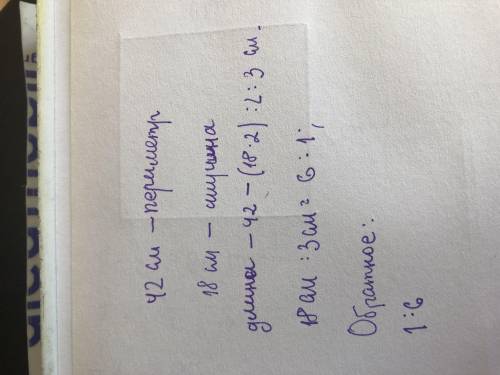 42 см – периметр
18 см – ширина
длина – 42 – (18·2) :2 : 3 см.
18 см : 3 см = 6 : 1;
Обратное:
1:6